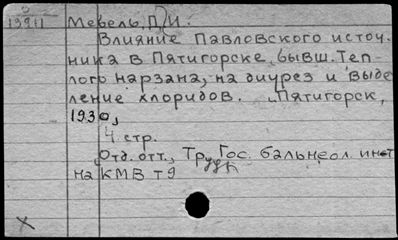 13911 Мевель, П. И.
Влияние Павловского источ-
ника в Пятигорске, бывш. Теп-
лого нарзана, на диурез и выде-
ление хлоридов. Пятигорск,
1930,
4 стр.
Отд. отт., Труды Гос. бальнеол. инст
на КМВ т 9